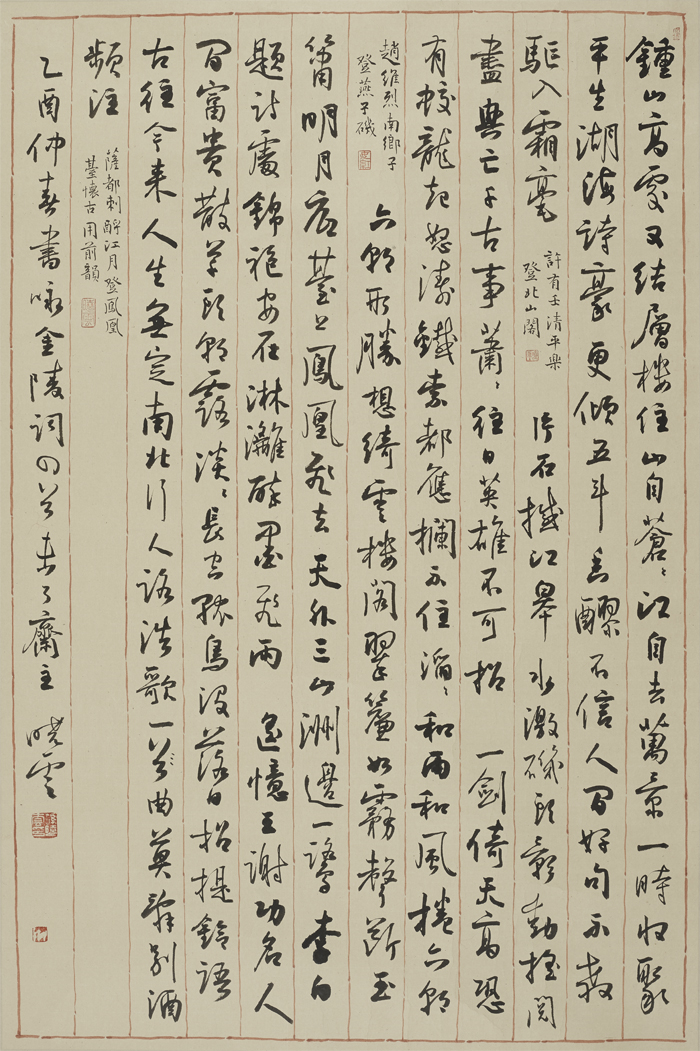 鍾山高處又結層樓住山自蒼〻江自去萬景一時收聚
平生湖海詩豪更傾五斗香醪不信人間好句不教
驅入霜毫
許有壬清平樂
登北山閣
片石撼江皋水激磯頭影動搖閱
盡興亡千古事蕭〻往日英雄不可招一劍倚天高恐
有蛟龍起怒濤鐵索都應攔不住滔〻和雨和風捲六朝
趙維烈南鄉子
登燕子磯
六朝形勝想綺雲樓閣翠簾如霧聲斷玉
簫明月底臺上鳳凰飛去天外三山洲邊一鷺李白
題詩處錦袍安在淋灕醉墨飛雨遙憶王謝功名人
間富貴散草頭朝露淡〻長空孤鳥沒落日招提鈴語
古往今來人生無定南北行人路浩歌一曲莫辭別酒
頻注
薩都刺酹江月登鳳凰
臺懷古用前韻
乙酉仲春書詠金陵詞四首未了齋主曉雲